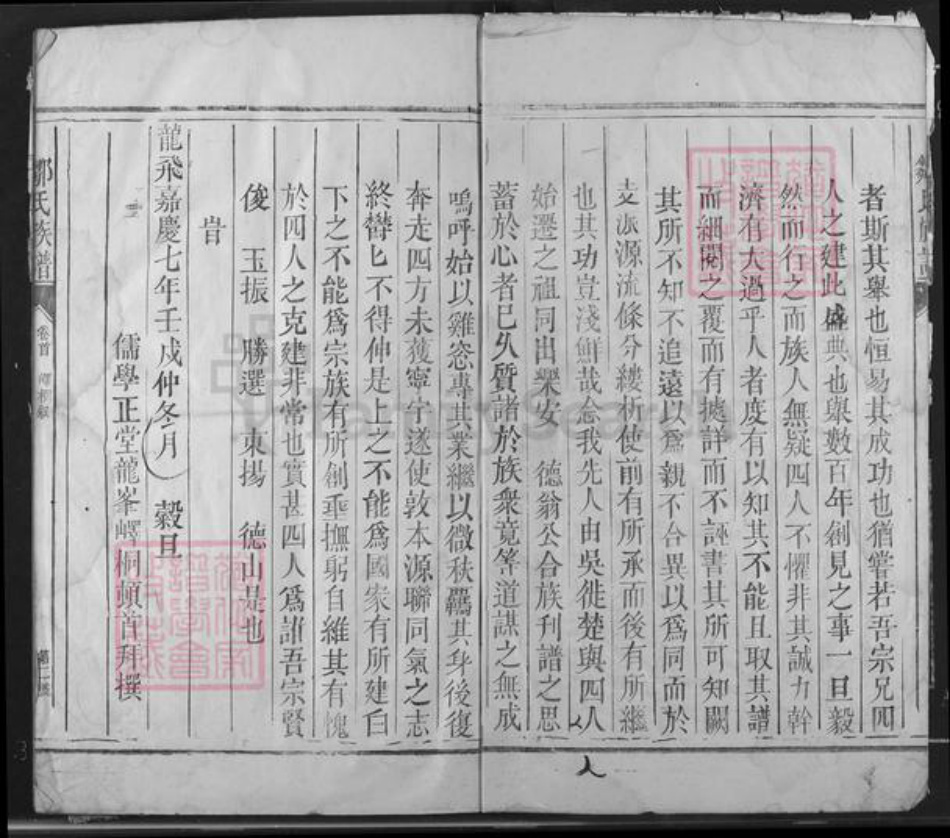 者斯其舉也恒易其成功也猶嘗若吾宗兄四
人之建此盛典也與數百年創見之事一旦毅
然而行之而族人無疑四人不懼非其誠力幹
濟有大過乎人者度有以知其不能且取其譜
而細閱之覆而有據詳而不誣書其所可知闕
其所不知不追遠以為親不合異以為同而於
支派源流條分縷析使前有所承而後有所繼
也其功豈淺鮮哉念我先人由吳徙楚與四人
始遷之祖同出樂安 德翁公合族刊譜之思
蓄於心者已久質諸於族衆竟筭道謀之無成
嗚呼始以雞窓專其業繼以微秩羈其身後復
奔走四方未獲寧宇遂使敦本源聯同氣之志
終欝匕不得伸是上之不能爲國家有所建白
下之不能爲宗族有所創垂撫躬自維其有愧
於四人之克建非常也實甚四人爲誰吾宗賢
俊 玉振 勝選 東揚 德山是也
旹
龍飛嘉慶七年壬戌仲冬月 穀旦
儒學正堂龍峯嶧桐頓首拜撰
鄒氏族譜
卷首